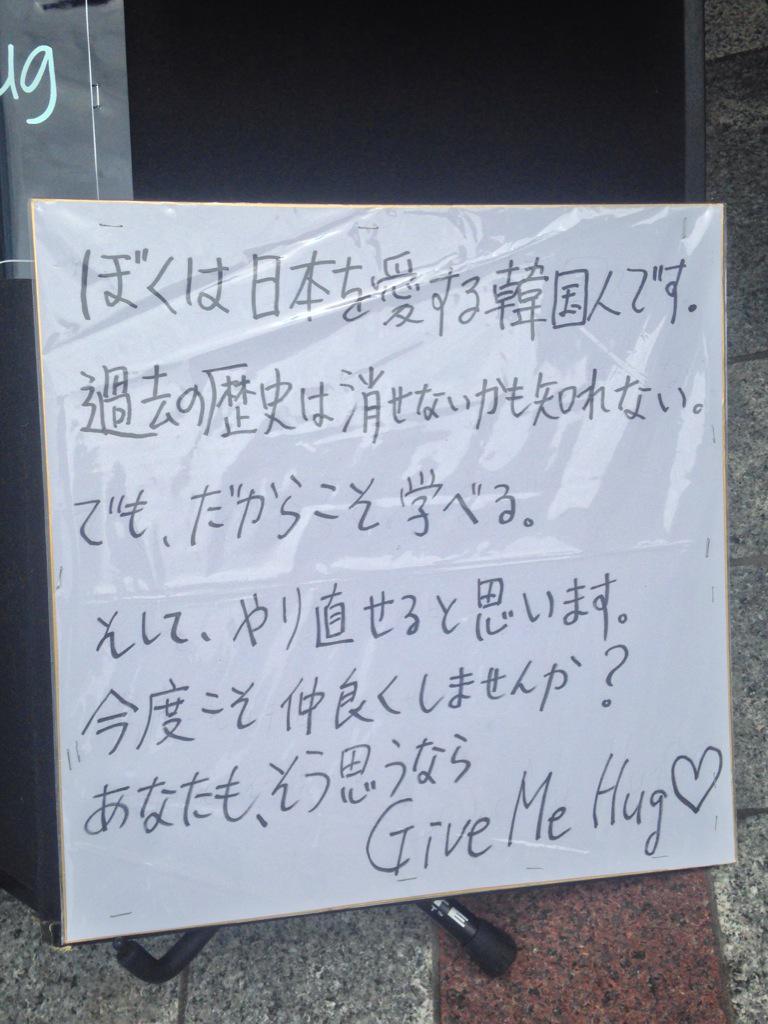 ug
ぼくは日本を愛する韓国人です。
過去の歴史は消せないかも知れない。
でも、だからこそ学べる。
そして、やり直せると思います。
今度こそ仲良くしませんか？
あなたも、そう思うなら
Give Me Hug♡